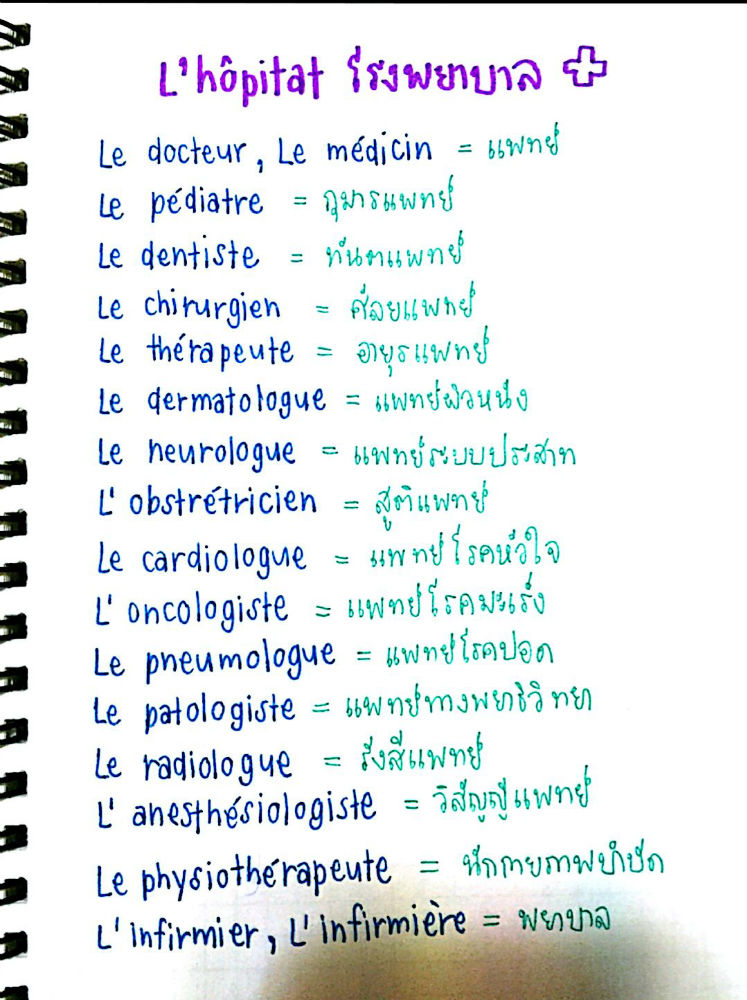 L'hôpitat โรงพยาบาล
Le docteur, Le médicin = แพทย์
Le pédiatre = กุมารแพทย์
Le dentiste = ทันตแพทย์
Le chirurgien = ศัลยแพทย์
Le thérapeute = อายุรแพทย์
Le dermatologue = แพทย์ผิวหนัง
Le neurologue = แพทย์ระบบประสาท
L'obstrétricien = สูติแพทย์
Le cardiologue = แพทย์โรคหัวใจ
L'oncologiste = แพทย์โรคมะเร็ง
Le pneumologue = แพทย์โรคปอด
Le patologiste = แพทย์ทางพยาธิวิทยา
Le radiologue = รังสีแพทย์
L'anesthésiologiste = วิสัญญีแพทย์
Le physiothérapeute = นักกายภาพบำบัด
L'infirmier, L'infirmière = พยาบาล